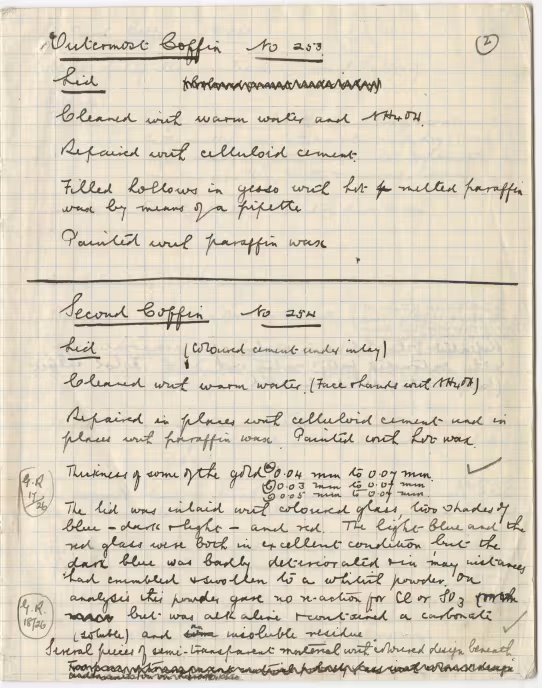 Outermost Coffin No 253 (2)
Lid
Cleaned with warm water and NH4OH.
Repaired with celluloid cement.
Filled hollows in gesso with hot melted paraffin
wax by means of a pipette
Painted with paraffin wax
Second Coffin No 254
Lid (Coloured cement under inlay)
Cleaned with warm water. (Face & hands with NH4OH)
Repaired in places with celluloid cement and in
places with paraffin wax. Painted with hot wax.
Thickness of some of the gold (a) 0.04 mm to 0.07 mm.
(b) 0.03 mm to 0.04 mm
(c) 0.05 mm to 0.07 mm.
G.R.
17/26
The lid was inlaid with coloured glass, two shades of
blue - dark & light - and red. The light blue and the
red glass were both in excellent condition but the
dark blue was badly deteriorated & in many instances
had crumbled & swollen to a whitish powder. On
analysis this powder gave no reaction for Cl or SO3
but was alkaline & contained a carbonate
G.R.
18/26
(soluble) and insoluble residue
Several pieces of semi-transparent material with coloured design beneath